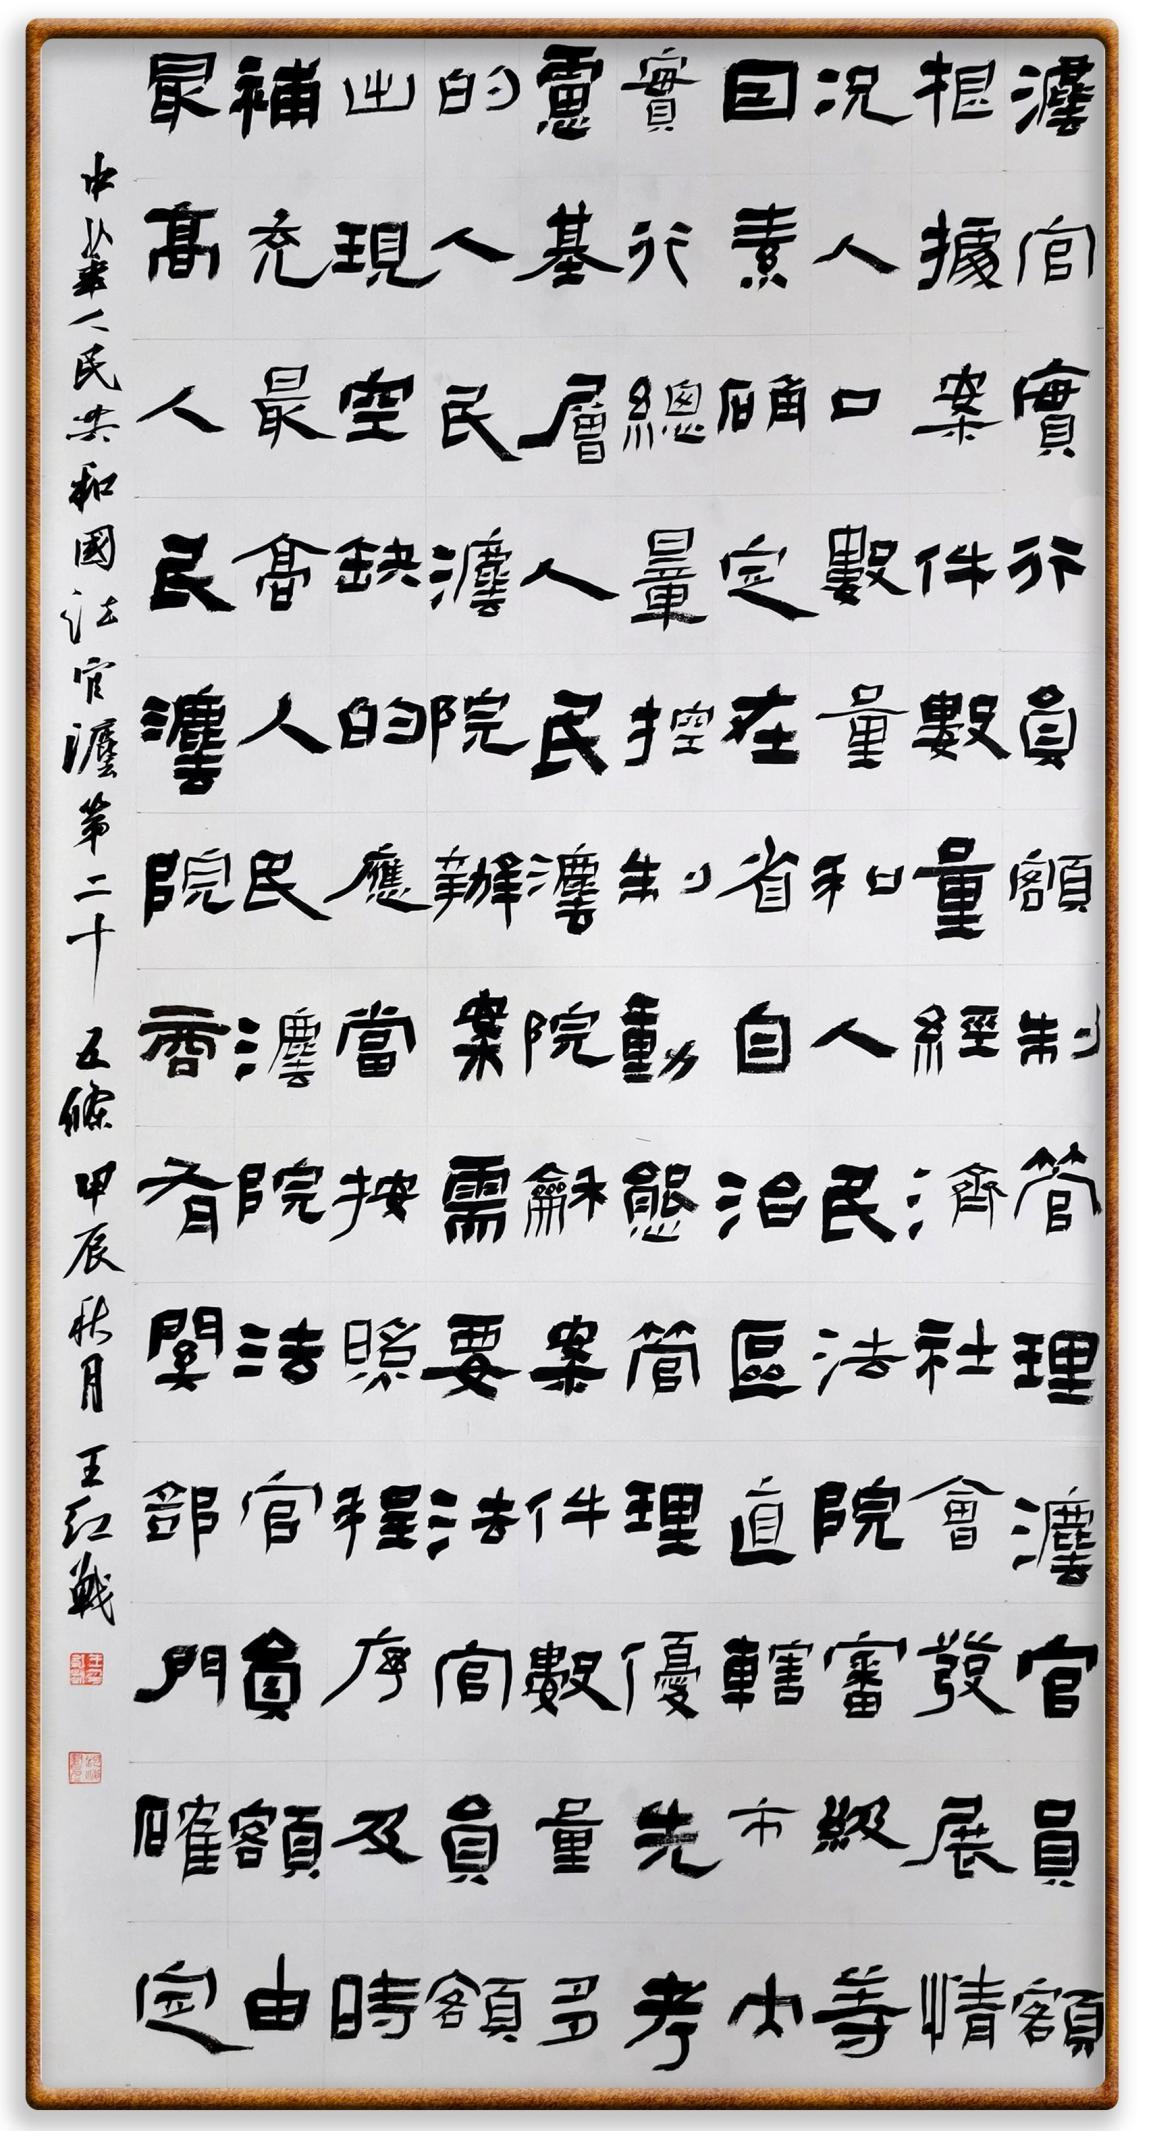 灋官實行員額制管理灋官員額
根據案件數量經濟社會發展情
况人口數量和人民法院審級等
因素確定在省自治區直轄市内
實行總量控制動態管理優先考
慮基層人民灋院龢案件數量多
的人民灋院辦案需要法官員額
出現空缺的應當按照程序及時
補充最高人民灋院法官員額由
最高人民灋院商有関部門確定
中華人民共和國法官灋第二十五條甲辰秋月王红戰